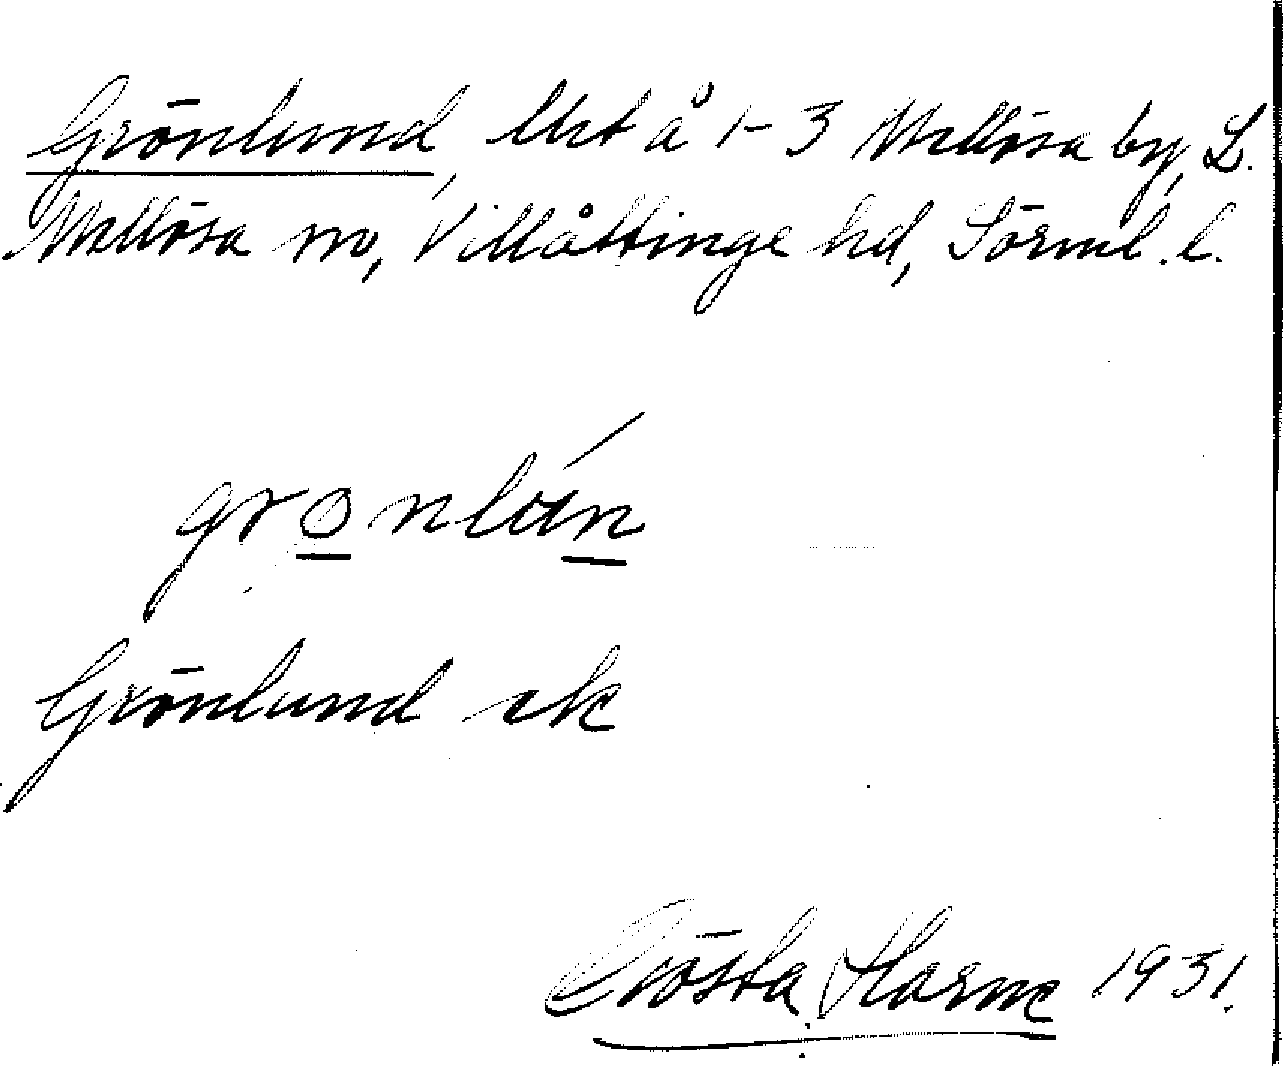 Grönlund, lht å 1-3 Mellösa by, L.
Mellösa sn, Villåttinge hd, Sörml. l.
grønlún
Grönlund ek
Gösta Harne 1931.